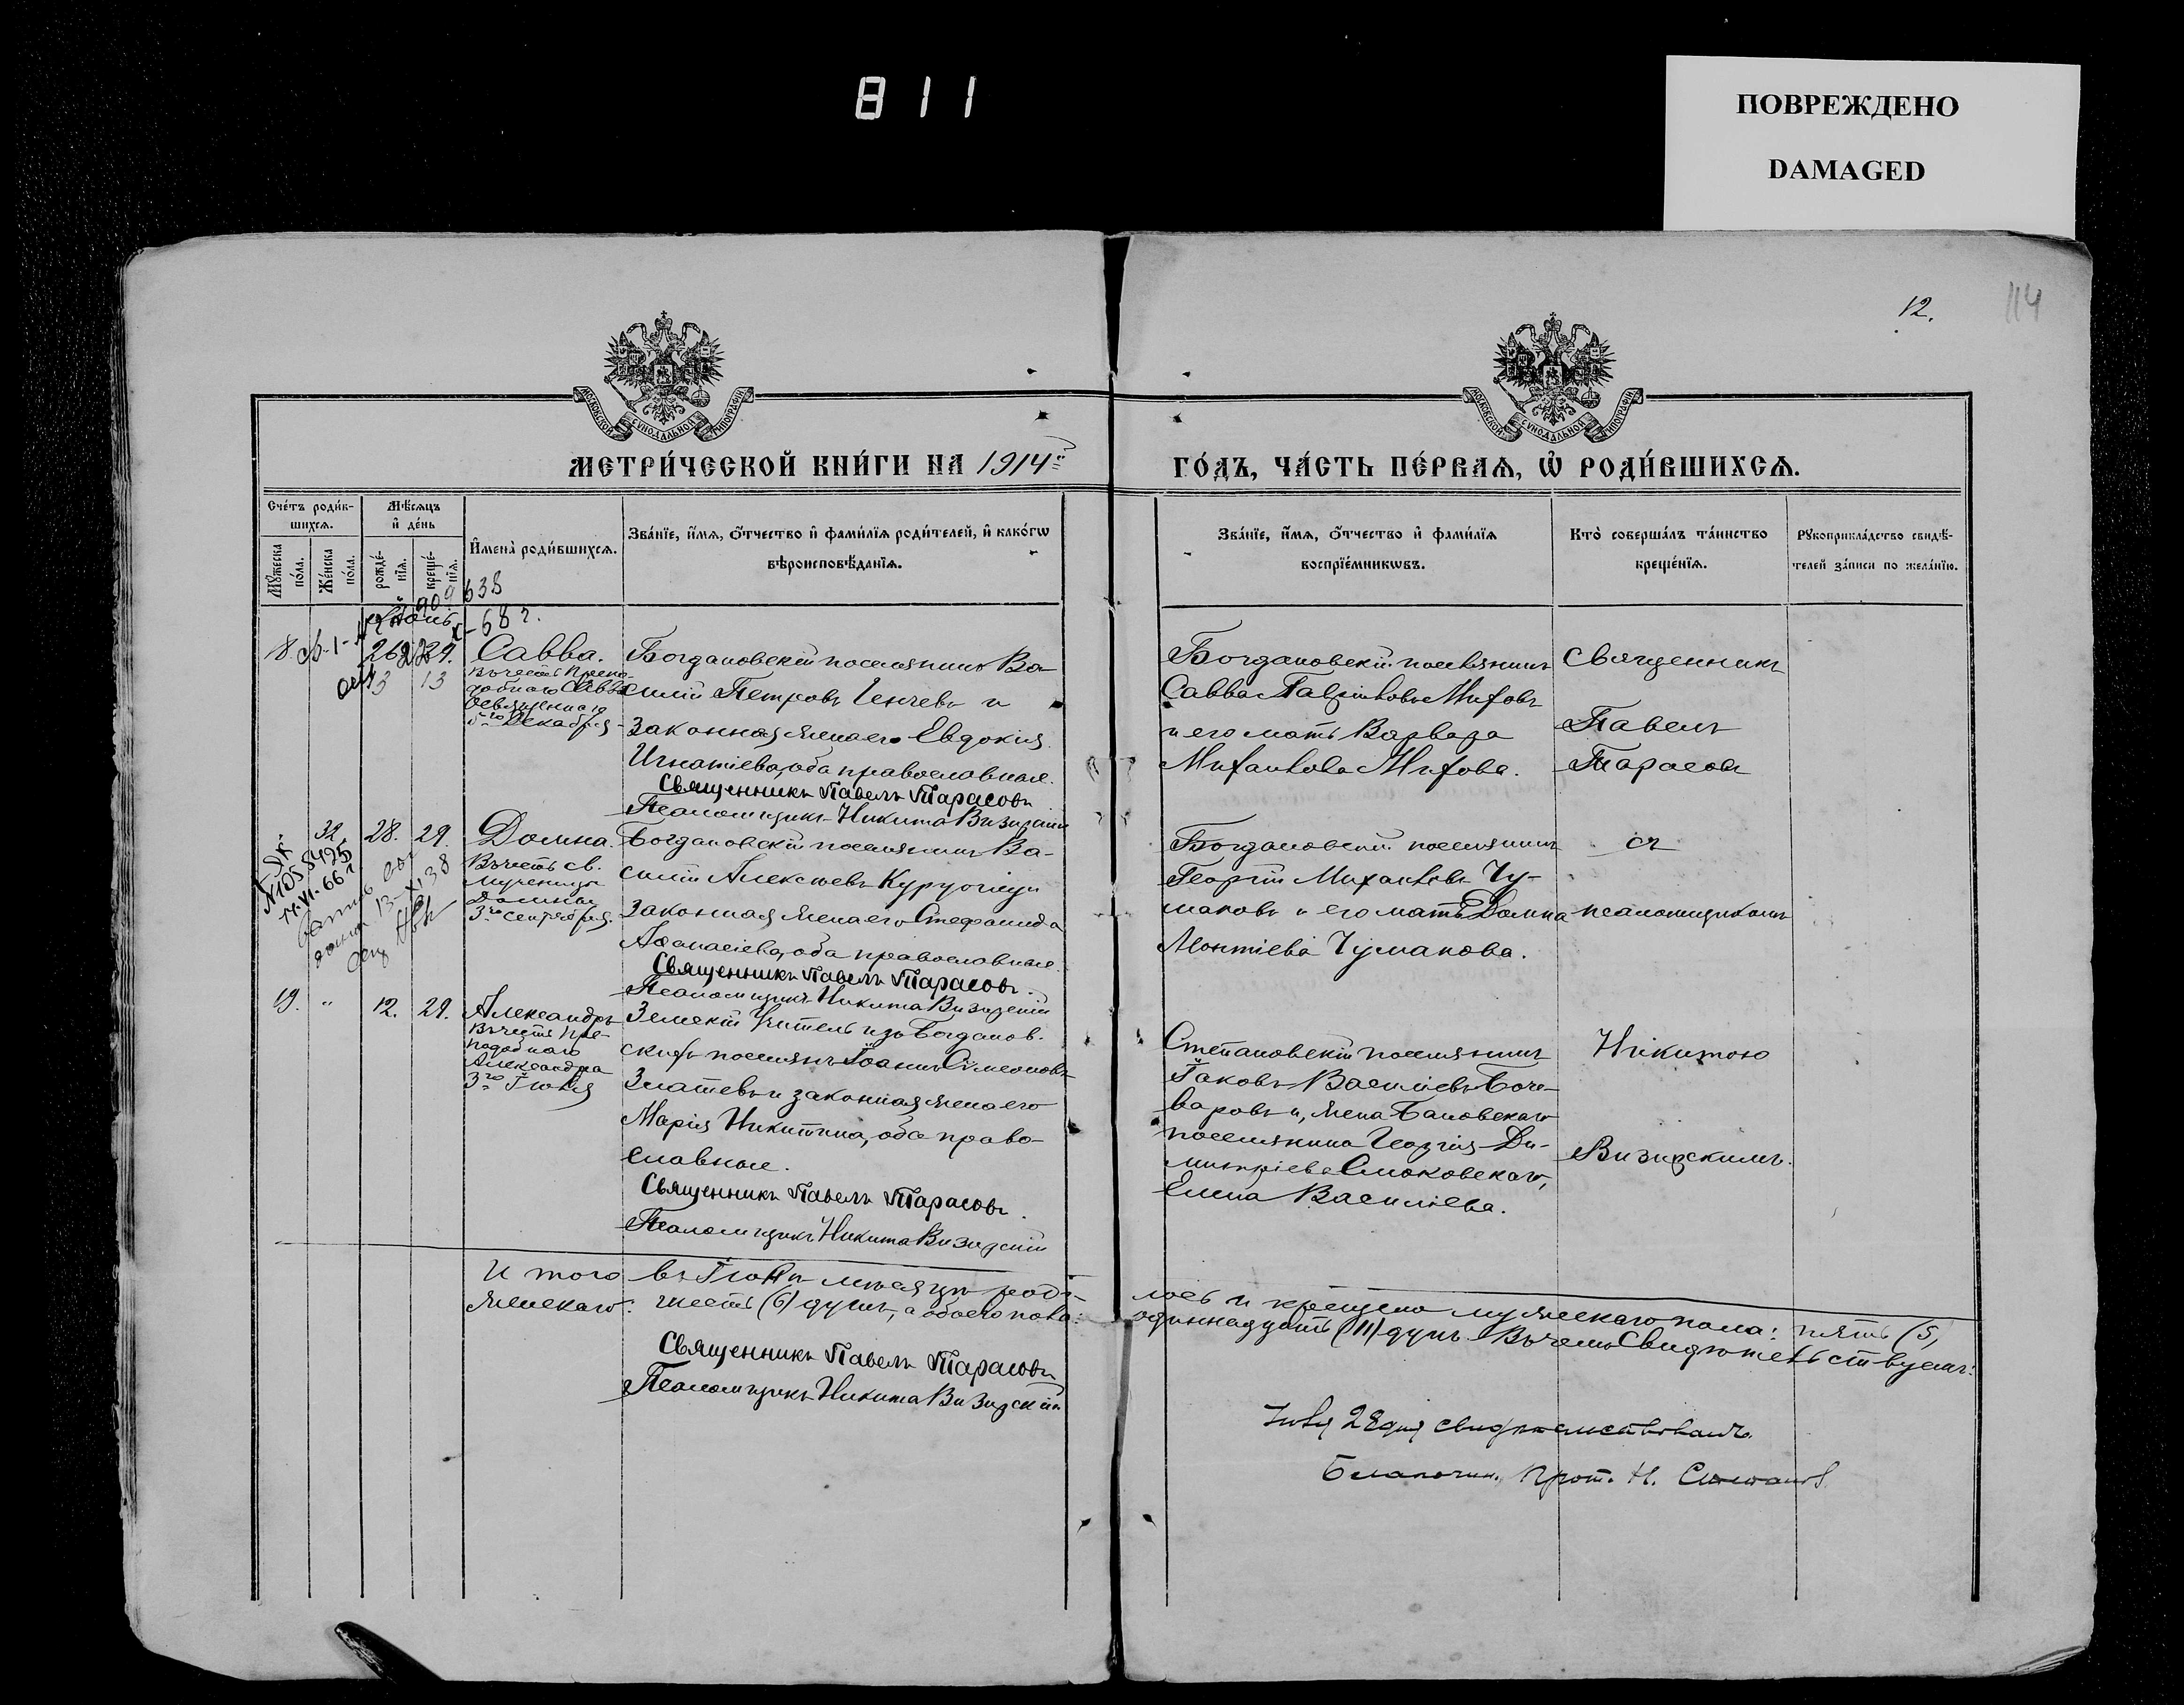 811
ПОВРЕЖДЕНО
DAMAGED
12.
114
МОСКОВСКОЙ СѴНОДАЛЬНОЙ ТИПОГРАФІИ
МОСКОВСКОЙ СѴНОДАЛЬНОЙ ТИПОГРАФІИ
МЕТРИ́ЧЕСКОЙ КНИ́ГИ НА 1914й
ГО́ДЪ, ЧА́СТЬ ПЕ́РВАѦ, Ѿ РОДИ́ВШИХСѦ.
Сче́тъ роди́вшихсѧ.
Мꙋ́жеска по́ла.
Же́нска по́ла.
Мѣ́сѧцъ и҆ де́нь
рожде́нїѧ.
креще́нїѧ.
И҆мена̀ роди́вшихсѧ.
Зва́нїе, и҆́мѧ, ѻ҆́тчество и҆ фами́лїѧ роди́телей, и҆ како́гѡ вѣроисповѣ́данїѧ.
Зва́нїе, и҆́мѧ, ѻ҆́тчество и҆ фами́лїѧ воспрїе́мникѡвъ.
Кто̀ соверша́лъ та́инство креще́нїѧ.
Рꙋкоприкла́дство свидѣ́телей за́писи по жела́нїю.
638
68 г.
18.
29.
13
Савва.
Въ честь Препо-
добнаго Саввы
Освященнаго
5го Декабря
Богдановскій поселянинъ Ва-
силій Петровъ Генчевъ и
законная жена его Евдокія
Игнатіева, оба православные.
Священникъ Павелъ Тарасовъ
Псаломщикъ Никита Визирскій
Богдановскій поселянинъ
Савва Гавріиловъ Мифовъ
и его мать Варвара
Михаилова Мифова.
Священникъ
Павелъ
Тарасовъ
32.
28.
29.
N105 8425
17.VI.66 г
13-XI 38
Домна.
Въ честь св.
Мученицы
Домны
3го Сентября.
Богдановскій поселянинъ Ва-
силій Алексѣевъ
законная жена его Стефанида
Аѳанасіева, оба православные.
Священникъ Павелъ Тарасовъ.
Псаломщикъ Никита Визирскій
Богдановскій поселянинъ
Георгій Михаиловъ Чу-
маковъ и его мать Домна
Леонтіева Чумакова.
съ
псаломщикомъ
19.
"
12.
29.
Александръ
Въ честь Пре-
подобнаго
Александра
3го Іюля
Земскій Учитель изъ Богданов-
скихъ поселянъ Іоаннъ Симеоновъ
Златевъ и законная жена его
Марія Никитина, оба право-
славные.
Священникъ Павелъ Тарасовъ.
Псаломщикъ Никита Визирскій
Степановскій поселянинъ
Іаковъ Василіевъ Боче-
варовъ и, жена Бановскаго
поселянина Георгія Ди-
митріева Смоковскаго,
Елена Василіева.
Никитою
Визирскимъ.
Итого въ Іюнѣ мѣсяцѣ роди-
лось и крещено мужескаго пола: пять (5,
женскаго: шесть (6) душъ, а обоего пола:
одиннадцать (11) душъ. Въ чемъ Свидѣтельствуемъ:
Священникъ Павелъ Тарасовъ
Псаломщикъ Никита Визирскій
Іюля 28 дня свидѣтельствовалъ
Благочин. Прот. Н.